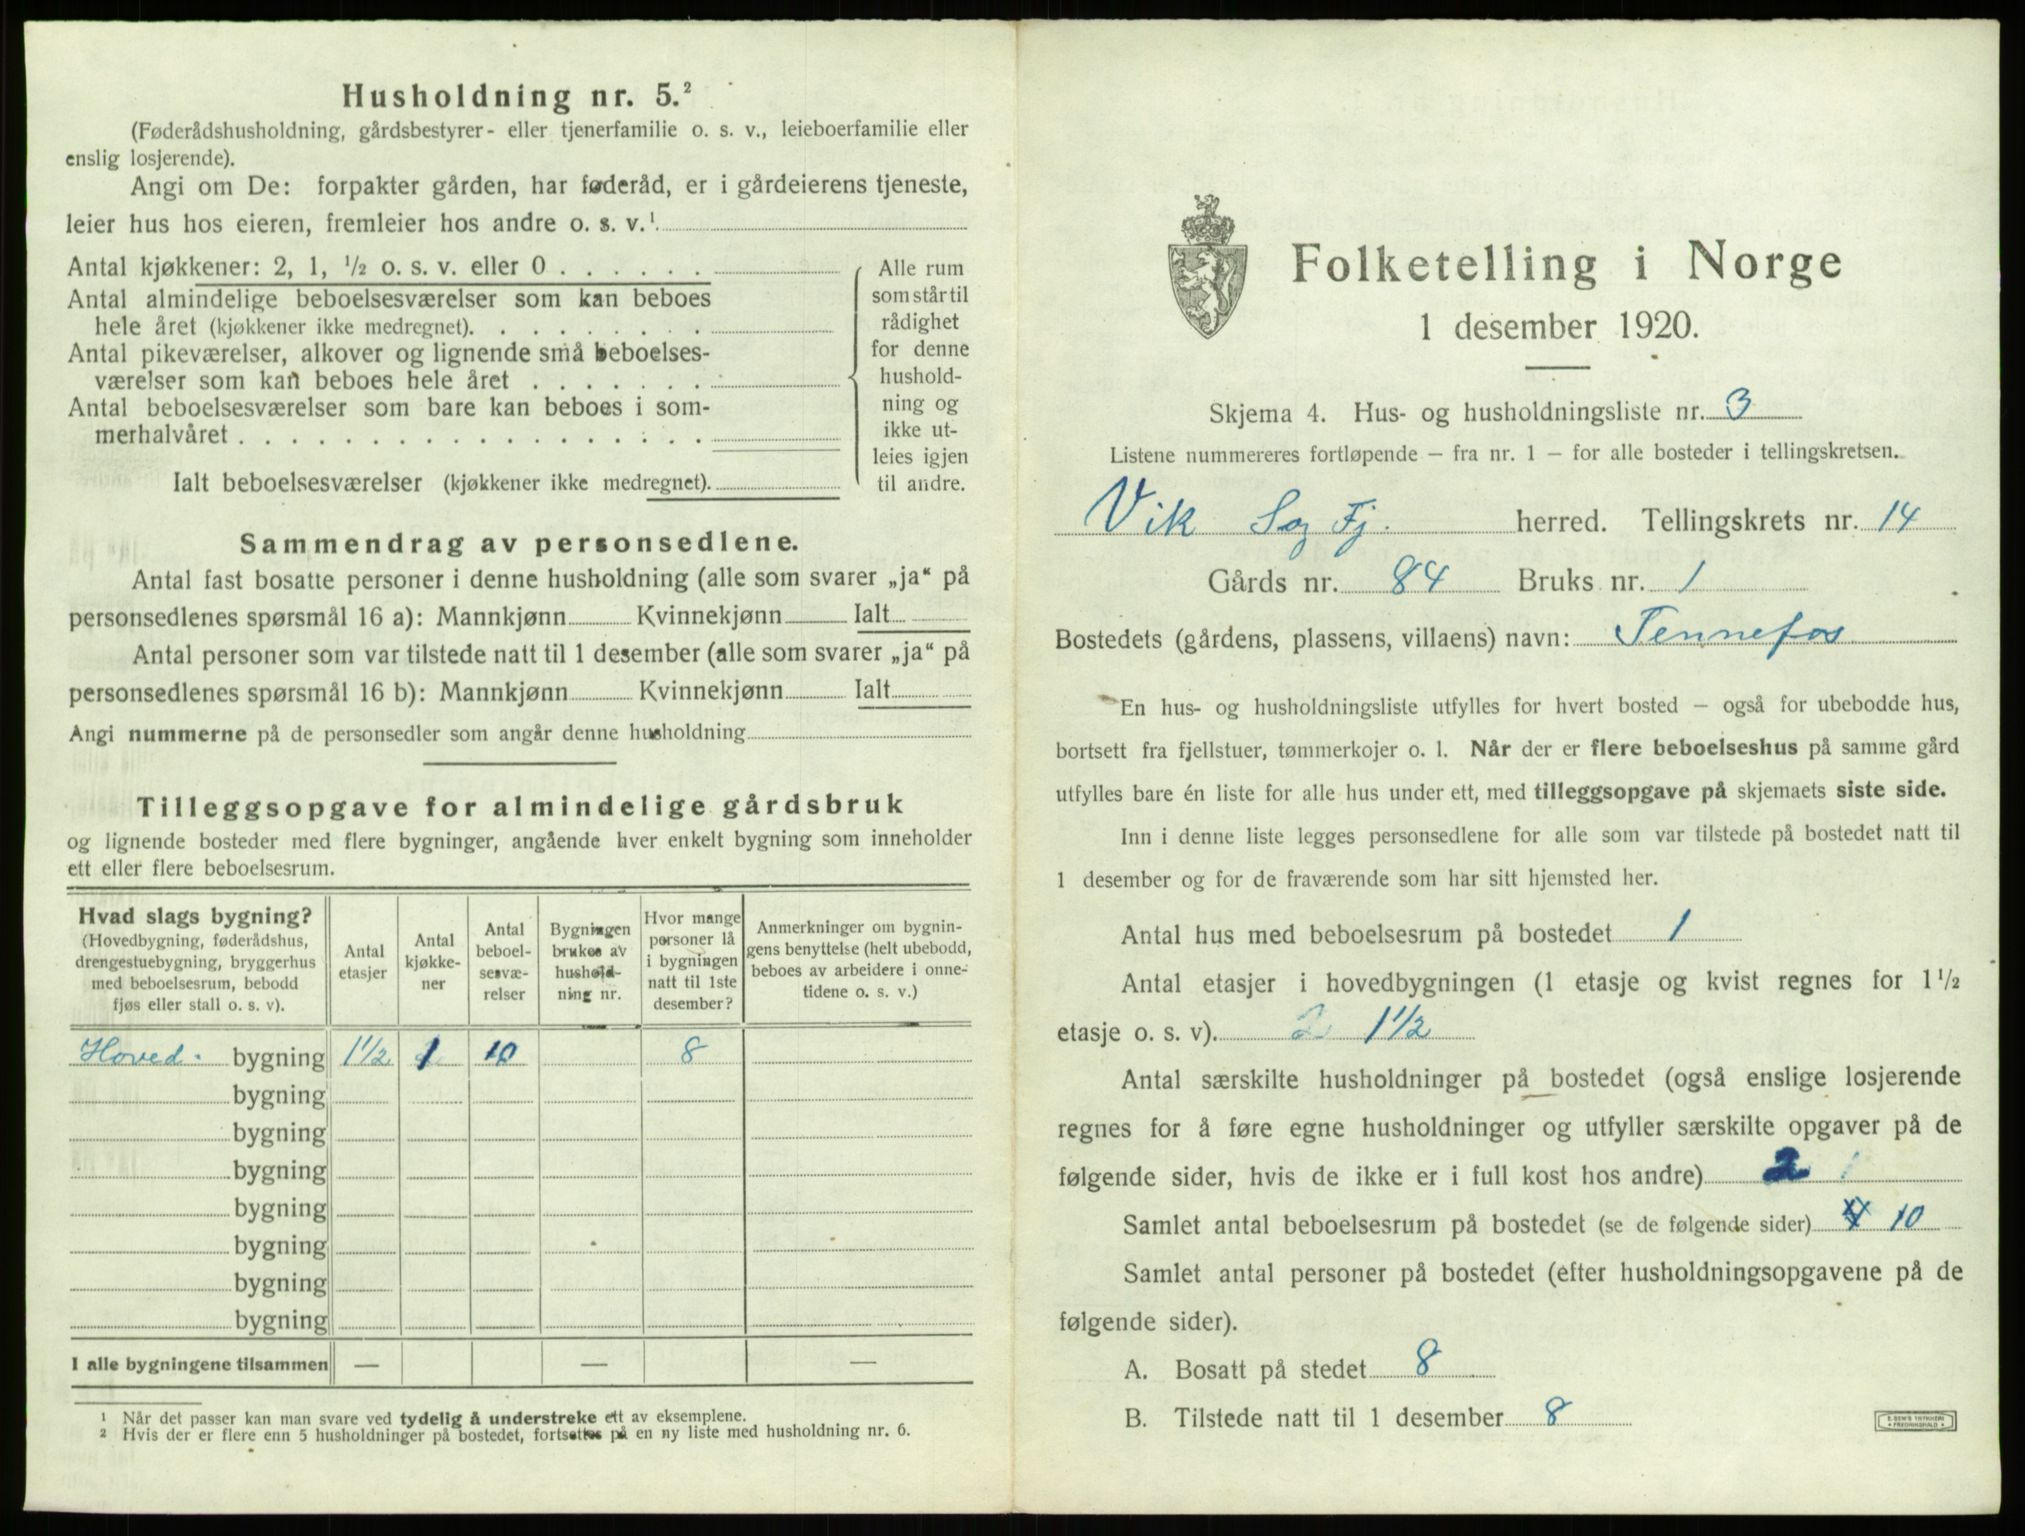 Husholdning nr. 5.²
(Føderådshusholdning, gårdsbestyrer- eller tjenerfamilie o. s. v., leieboerfamilie eller
enslig losjerende).
Angi om De: forpakter gården, har føderåd, er i gårdeierens tjeneste,
leier hus hos eieren, fremleier hos andre o. s. v.¹
Antal kjøkkener: 2, 1, ½ o. s. v. eller 0 . . . . . .
Antal almindelige beboelsesværelser som kan beboes
hele året (kjøkkener ikke medregnet). . . . . . . . .
Antal pikeværelser, alkover og lignende små beboelses-
værelser som kan beboes hele året . . . . . . .
Antal beboelsesværelser som bare kan beboes i som-
merhalvåret . . . . . . . . . . . . . . . . . .
Ialt beboelsesværelser (kjøkkener ikke medregnet).
Alle rum
som står til
rådighet
for denne
hushold-
ning og
ikke ut-
leies igjen
til andre.
Sammendrag av personsedlene.
Antal fast bosatte personer i denne husholdning (alle som svarer „ja“ på
personsedlenes spørsmål 16 a): Mannkjønn Kvinnekjønn Ialt
Antal personer som var tilstede natt til 1 desember (alle som svarer „ja“ på
personsedlenes spørsmål 16 b): Mannkjønn Kvinnekjønn Ialt
Angi nummerne på de personsedler som angår denne husholdning
Tilleggsopgave for almindelige gårdsbruk
og lignende bosteder med flere bygninger, angående hver enkelt bygning som inneholder
ett eller flere beboelsesrum.
Hvad slags bygning?
(Hovedbygning, føderådshus,
drengestuebygning, bryggerhus
med beboelsesrum, bebodd
fjøs eller stall o. s. v).
Antal
etasjer
Antal
kjøkke-
ner
Antal
beboel-
sesvæ-
relser
Bygningen
brukes av
hushold-
ning nr.
Hvor mange
personer lå
i bygningen
natt til 1ste
desember?
Anmerkninger om bygnin-
gens benyttelse (helt ubebodd,
beboes av arbeidere i onne-
tidene o. s. v.)
Hoved- bygning 1½ 1 10 8
bygning
bygning
bygning
bygning
bygning
bygning
bygning
I alle bygningene tilsammen — — —
¹ Når det passer kan man svare ved tydelig å understreke ett av eksemplene.
² Hvis der er flere enn 5 husholdninger på bostedet, fortsettes på en ny liste med husholdning nr. 6.
Folketelling i Norge
1 desember 1920.
Skjema 4. Hus- og husholdningsliste nr. 3
Listene nummereres fortløpende – fra nr. 1 – for alle bosteder i tellingskretsen.
Vik Sog Fj. herred. Tellingskrets nr. 14
Gårds nr. 84 Bruks nr. 1
Bostedets (gårdens, plassens, villaens) navn: Tennefos
En hus- og husholdningsliste utfylles for hvert bosted – også for ubebodde hus,
bortsett fra fjellstuer, tømmerkojer o. l. Når der er flere beboelseshus på samme gård
utfylles bare én liste for alle hus under ett, med tilleggsopgave på skjemaets siste side.
Inn i denne liste legges personsedlene for alle som var tilstede på bostedet natt til
1 desember og for de fraværende som har sitt hjemsted her.
Antal hus med beboelsesrum på bostedet 1
Antal etasjer i hovedbygningen (1 etasje og kvist regnes for 1 ½
etasje o. s. v). 2 1½
Antal særskilte husholdninger på bostedet (også enslige losjerende
regnes for å føre egne husholdninger og utfyller særskilte opgaver på de
følgende sider, hvis de ikke er i full kost hos andre) 2 1
Samlet antal beboelsesrum på bostedet (se de følgende sider) 10
Samlet antal personer på bostedet (efter husholdningsopgavene på de
følgende sider).
A. Bosatt på stedet 8
B. Tilstede natt til 1 desember 8